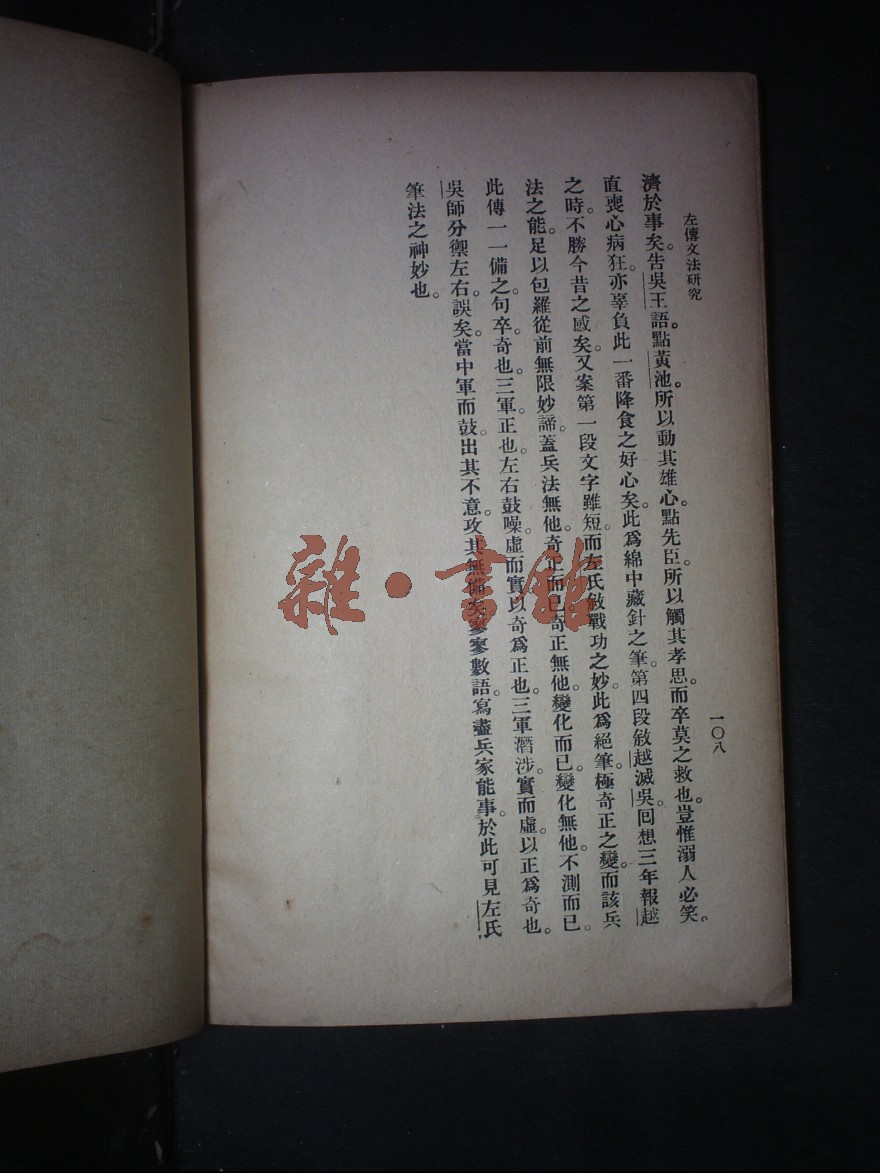 左傳文法研究
一〇八
濟於事矣。告吳王語。點黃池。所以動其雄心。點先臣。所以觸其孝思。而卒莫之救也。豈惟溺人必笑。
直喪心病狂。亦辜負此一番降食之好心矣。此爲綿中藏針之筆。第四段敘越滅吳。回想三年報越
之時。不勝今昔之感矣。又案第一段文字雖短。而左氏敘戰功之妙。此爲絕筆。極奇正之變。而該兵
法之能。足以包羅從前無限妙諦。蓋兵法無他。奇正而已。奇正無他。變化而已。變化無他。不測而已。
此傳一一備之。句卒奇也。三軍正也。左右鼓噪。虛而實。以奇爲正也。三軍潛涉。實而虛。以正爲奇也。
吳師分禦左右。誤矣。當中軍而鼓。出其不意。攻其無備矣。寥寥數語。寫盡兵家能事。於此可見左氏
筆法之神妙也。
雜·書館